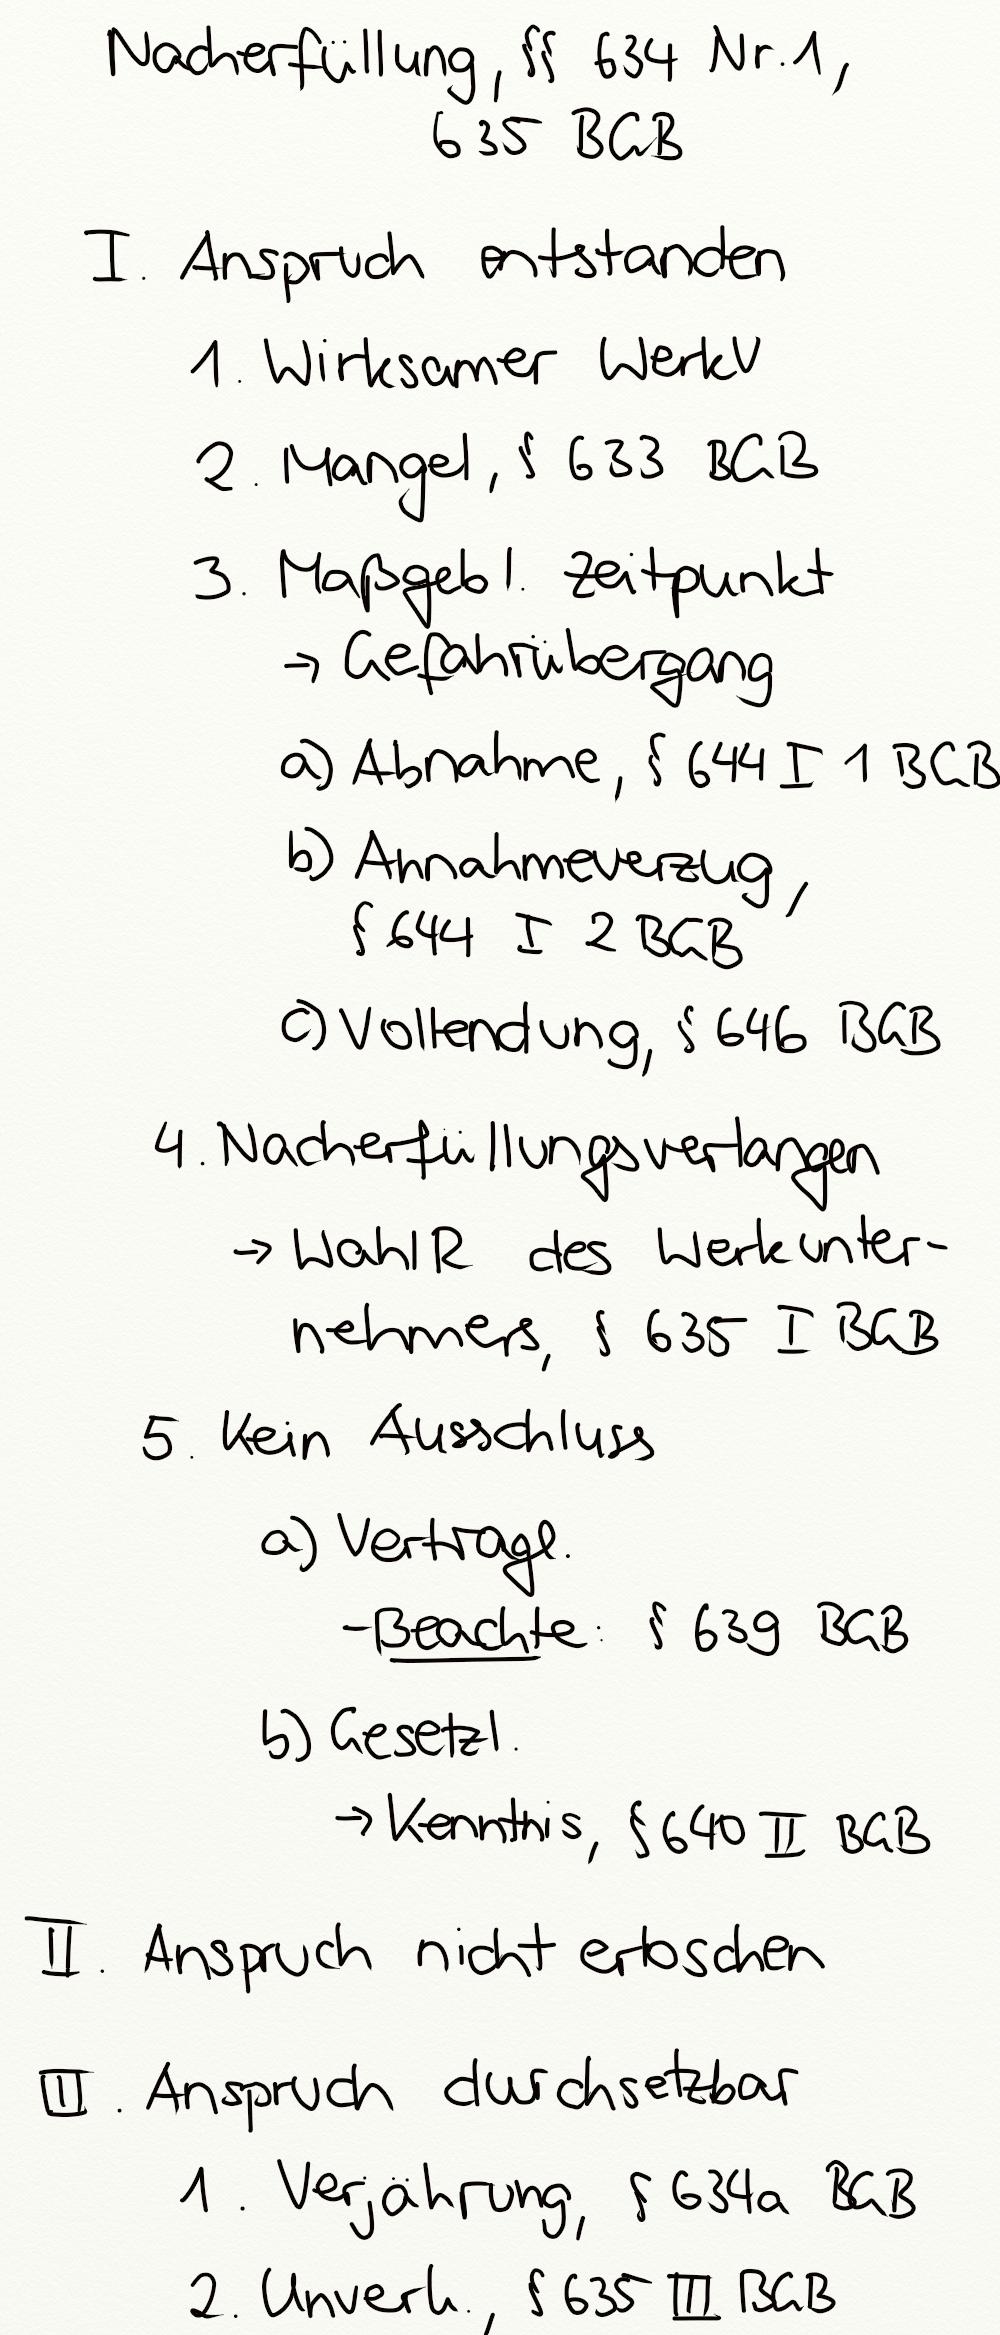 Nacherfüllung, §§ 634 Nr. 1,
635 BGB
I. Anspruch entstanden
1. Wirksamer WerkV
2. Mangel, § 633 BGB
3. Maßgebl. Zeitpunkt
→ Gefahrübergang
a) Abnahme, § 644 I 1 BGB
b) Annahmeverzug,
§ 644 I 2 BGB
c) Vollendung, § 646 BGB
4. Nacherfüllungsverlangen
→ WahlR des Werkunter-
nehmers, § 635 I BGB
5. Kein Ausschluss
a) Vertragl.
- Beachte: § 639 BGB
b) Gesetzl.
→ Kenntnis, § 640 II BGB
II. Anspruch nicht erloschen
III. Anspruch durchsetzbar
1. Verjährung, § 634a BGB
2. Unverh., § 635 III BGB